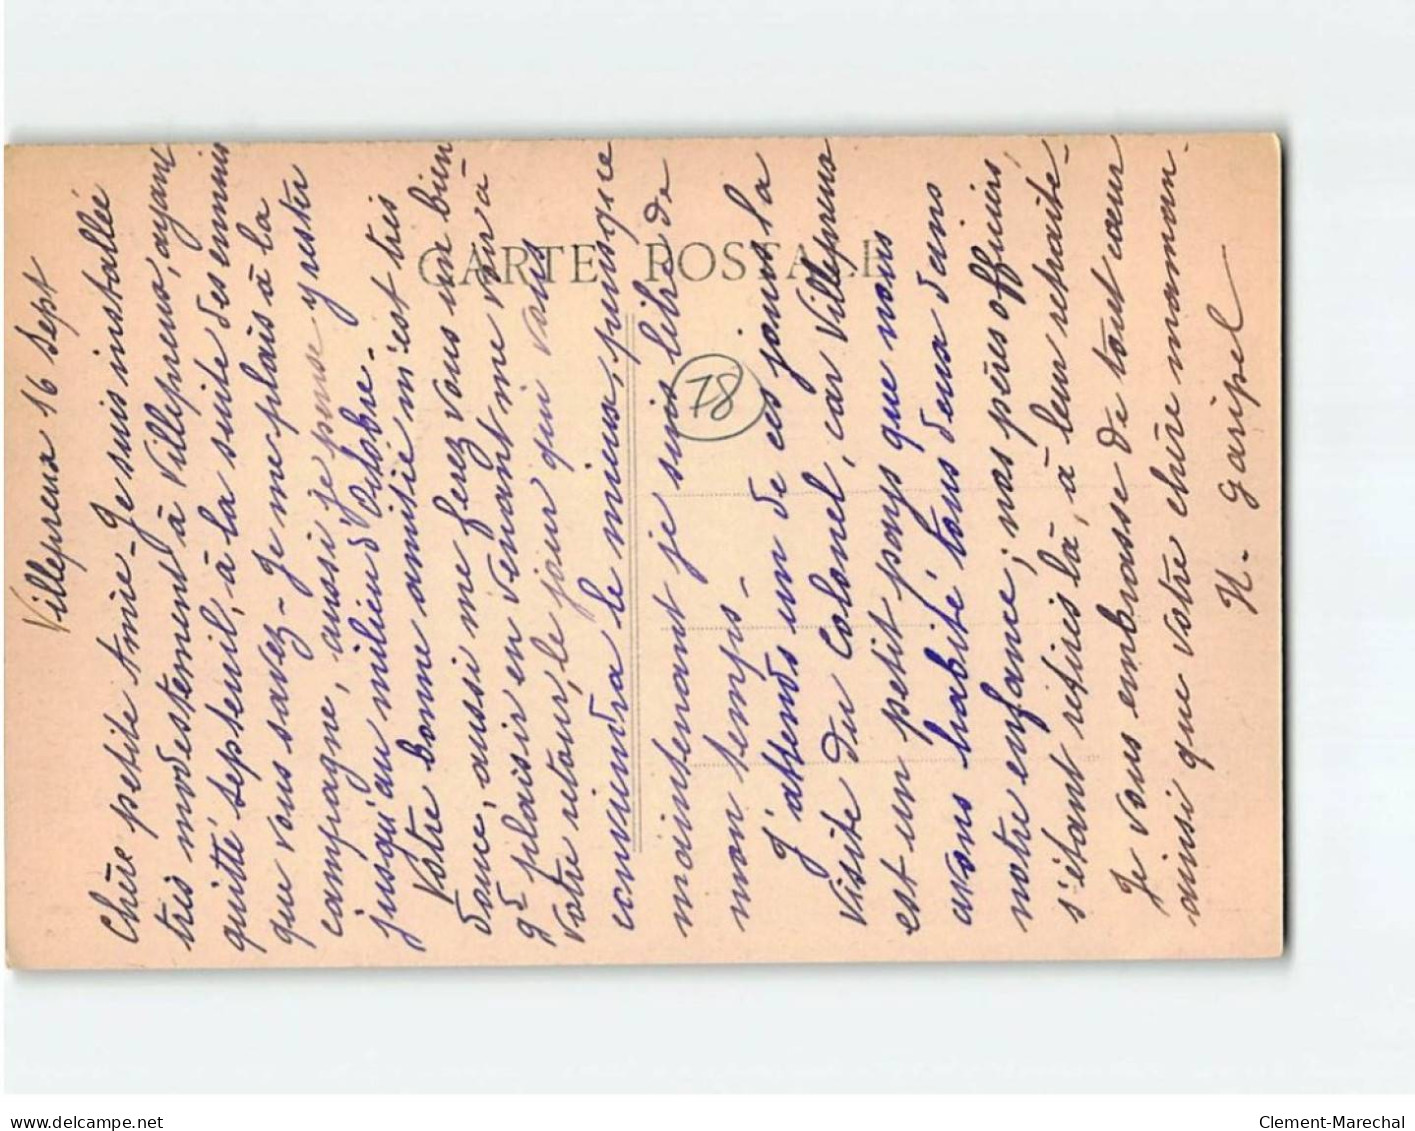 Villepreux 16 Sept
Chère petite Amie - Je suis installée
très modestement à Villepreux, ayant
quitté Septeuil, à la suite des ennuis
que vous savez - Je me plais à la
campagne, aussi je pense y rester
jusqu'au milieu d'Octobre.
Votre bonne amitié m'est très
douce, aussi me ferez vous un bien
gd plaisir en venant me voir à
votre retour, le jour qui vous
conviendra le mieux, puisque
maintenant je suis libre de
mon temps.
J'attends un de ces jours la
visite du Colonel, car Villepreux
est un petit pays que nous
avons habité tous deux dans
notre enfance ; nos pères officiers
s'étant retirés là, à leur retraite -
Je vous embrasse de tout cœur
ainsi que votre chère maman.
H. Garipel
CARTE POSTALE
78
delcampe.net
Clement-Marechal